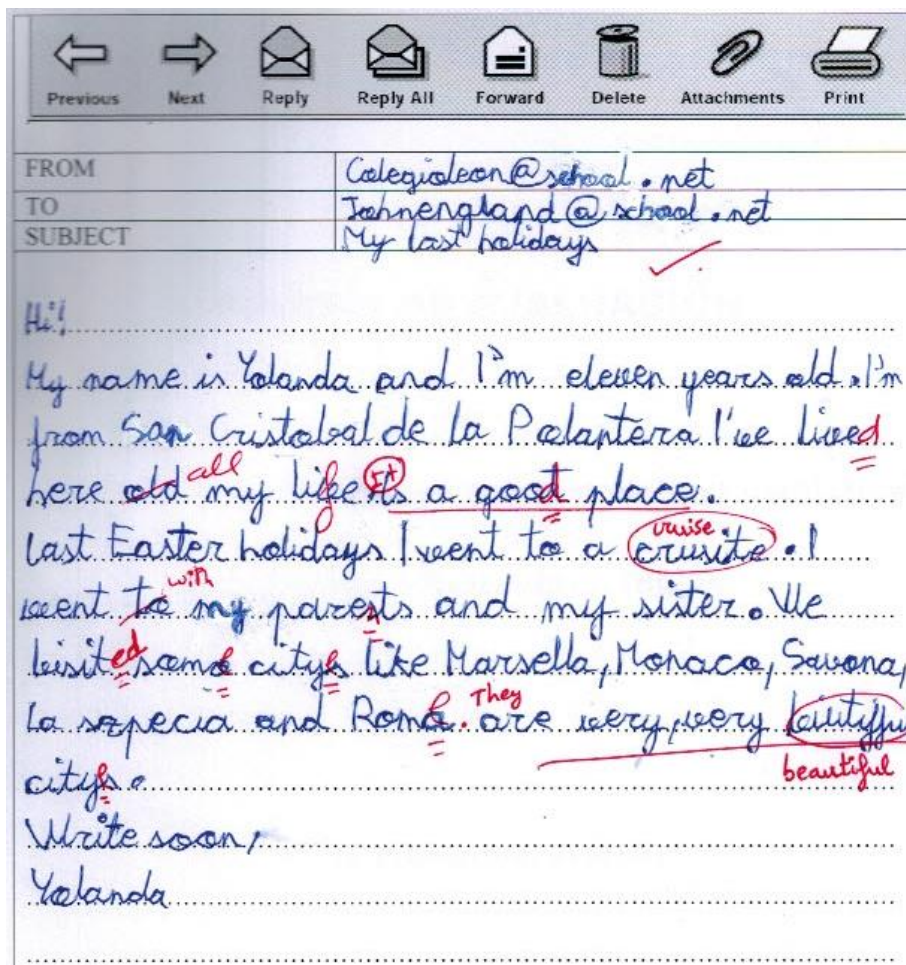 Previous Next Reply Reply All Forward Delete Attachments Print
FROM Colegioleon@school.net
TO Johnengland@school.net
SUBJECT My last holidays
Hi!
My name is Yolanda and I'm eleven years old. I'm
from San Cristobal de la Polantera I've lived
all
here old my life It's a good place.
cruise
last Easter holidays I went to a crusite. I
with
went to my parests and my sister. We
bisited some citys like Marsella, Monaco, Savona,
They
La sepecia and Rome. are very, very
beautiful
citys.
Write soon,
Yolanda